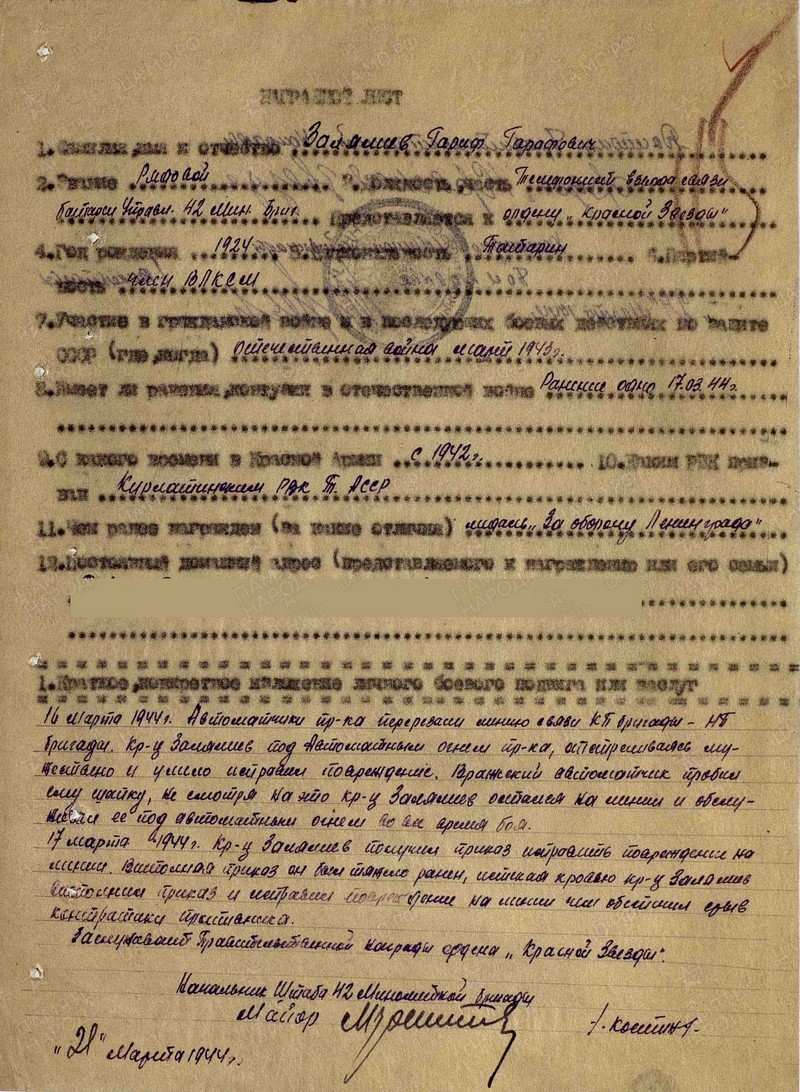 НАГРАДНОЙ ЛИСТ
1. Фамилия, имя и отчество Залялиев Гариф Гарафович
2. Звание Рядовой 3. Должность, часть Телефонист взвода связи
батареи Управл. 42 Мин. Бриг. Представляется к ордену „Красной Звезды"
4. Год рождения 1924 5. Национальность Татарин 6. Партий-
ность член ВЛКСМ
7. Участие в гражданской войне и в последующих боевых действиях по защите
СССР (где, когда) Отечественная война март 1943г.
8. Имеет ли ранения, контузии в отечественной войне Ранение одно 17.03.44г.
9. С какого времени в Красной Армии с 1942г. 10. Каким РВК приз-
ван РВК Т. АССР
11. Чем ранее награжден (за какие отличия) медаль „За оборону Ленинграда"
12. Постоянный домашний адрес (представляемого к награждению или его семьи)
1. Краткое, конкретное изложение личного боевого подвига или заслуг
16 марта 1944г. Автоматчики пр-ка перервали линию связи КП бригады - НП
бригады. Кр-ц Залялиев под автоматным огнем пр-ка, отстреливаясь му-
жественно и умело исправил повреждение. Вражеский автоматчик пробил
ему шапку, не смотря на это кр-ц Залялиев остался на линии и обслу-
живал ее под автоматным огнем во все время боя.
17 марта 1944г. Кр-ц Залялиев получил приказ исправить повреждение на
линии. Выполняя приказ он был тяжело ранен, истекая кровью кр-ц Залялиев
выполнил приказ и исправил повреждение на линии чем обеспечил срыв
контратаки противника.
Заслуживает Правительственной награды ордена „Красной Звезды".
Начальник Штаба 42 Минометной бригады
Майор /-Костин/-
"21" Марта 1944г.